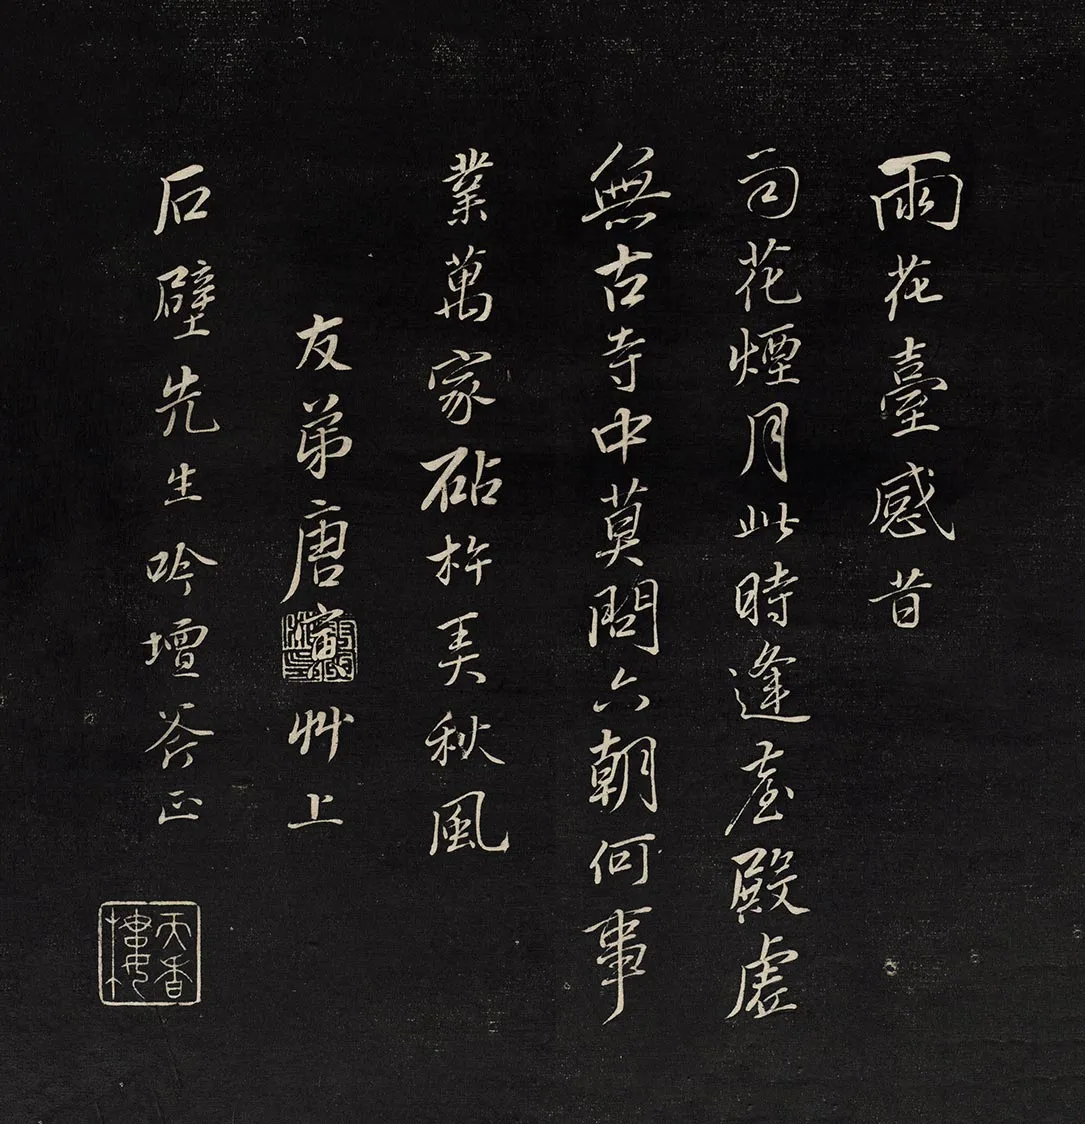 雨花臺感昔
司花煙月此時逢臺殿虛
無古寺中莫問六朝何事
業萬家砧杵秋風
友弟唐寅艸上
石壁先生吟壇斧正
天香樓